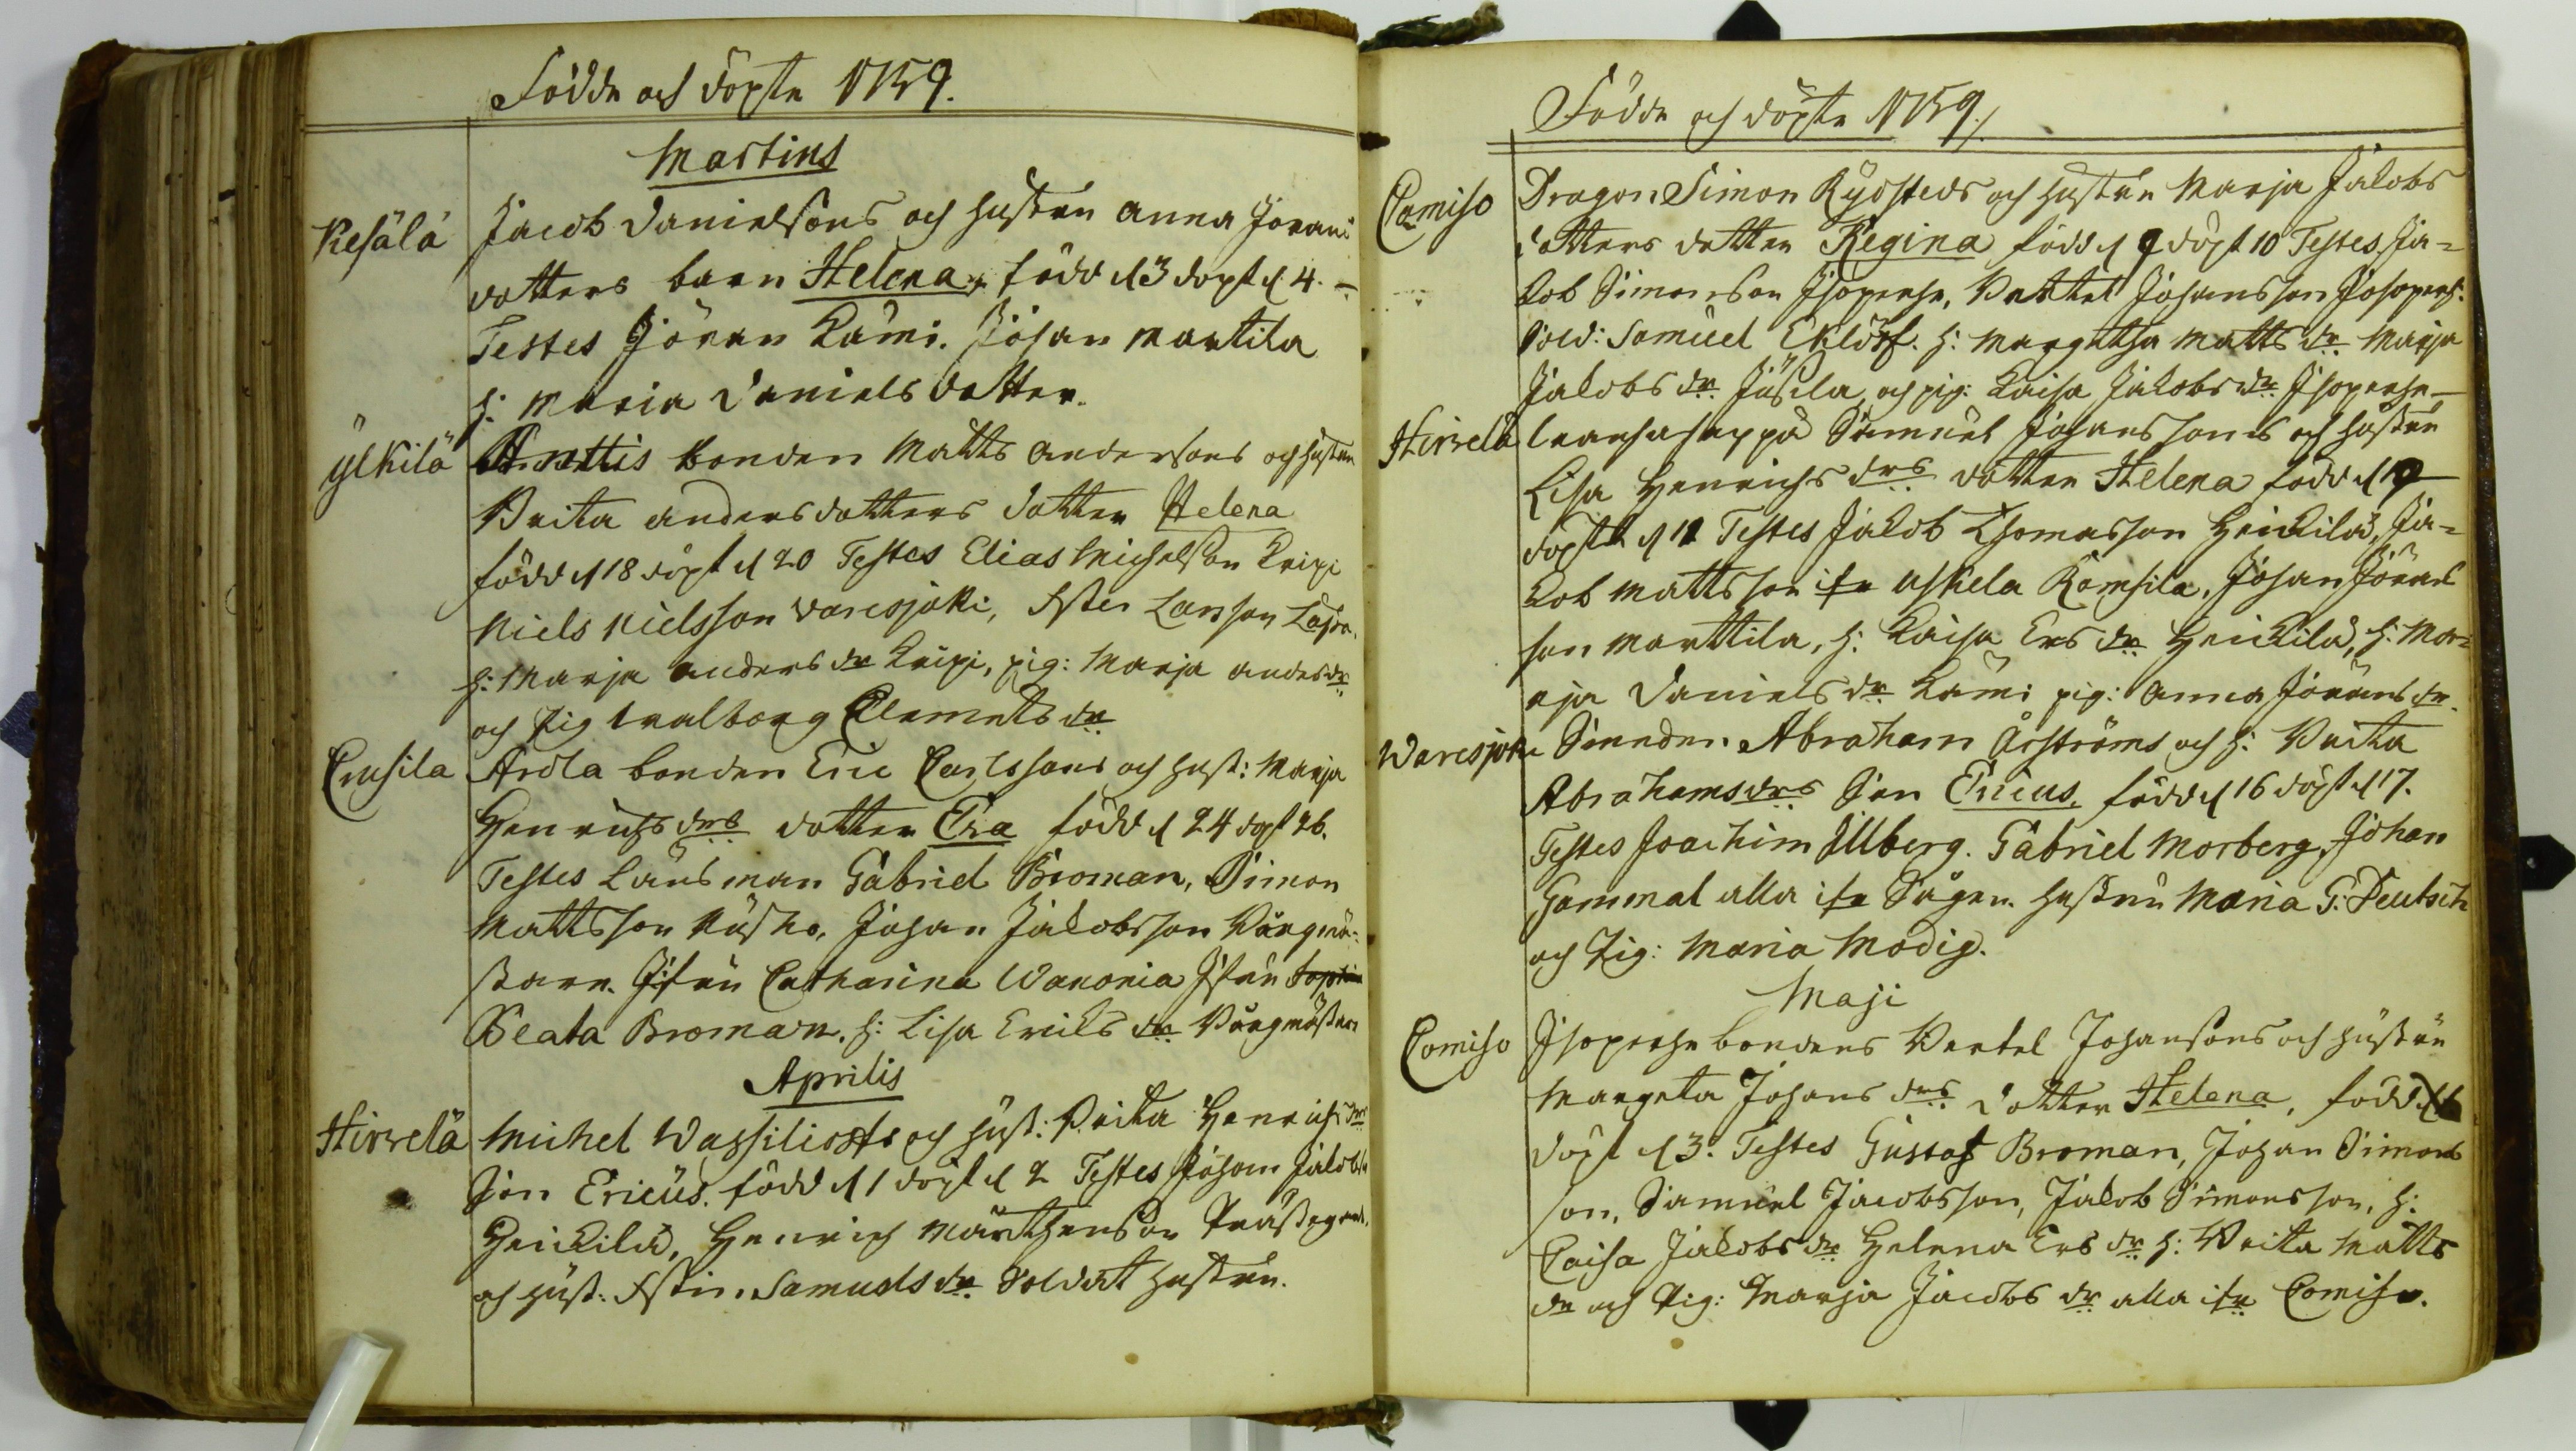 Födde och döpte 1759.
Martius
Kesälä Jacob Danielsons och hustrun Anna Jörans
dotters barn Helena, född d 3 döpt d. 4. –
Testes Jöran Kämi. Johan Martila
h: Maria Daniels dotter.
Ylkilä Anttis bonden Matts Andersons och hustrun
Brita Andersdotters dotter Helena
född d 18 döpt d 20 Testes Elias Michelson Knipi
Niels Nielsson Varesjoki, Larsson
h: Marja Anders dr Knipi, pig: Marja Anders dr
och Pig Walborg Clemets dr
Crusila Arola bonden Eric Carlssons och hust: Marja
Henrichs drs dotter Eva född d 24 döpt 26.
Testes Länsman Gabriel Broman, Simon
Mattsson Johan Jakobsson Bärgmä-
stare. Catharina Wanonia
Beata Broman. h: Lisa Eriks dr Bärgmästar
Aprilis
Hirvelä Michel Wassilioffs och hust: Brita Henrichs drs
son Ericus. född d 1 döpt d 2 Testes Johan Jakobss
Heickilä, Henrich Mårthenson
och hust: Samuels dr Soldat hustru.
Födde och döpte 1759.
Comiso Dragon Simon Rydsteds och hustrun Marja Jakobs
dotters dotter Regina född d 9 döpt 10 Testes Ja-
kob Simonson Isoperhe, Bertel Johansson Isoperh:
Sold: Samuel Eklöf. h: Margetha Matts dr Marja
Jakobs dr och pig: Kaisa Jakobs dr Isoperhe –
Hirvelä Samuel Johanssons och hustrun
Lisa Henrichs drs dotter Helena född d 9
döpt d 11 Testes Jakob Thomasson Heickilä, Ja-
kob Mattsson Uskela Johan Jörans
son Marttila, h: Kaisa Ers dr Heickilä, h: Mar-
rja Daniels dr Kämi pig: Anna Jörans dr.
Waresjoki Smeden Abraham Åhströms och h: Brita
Abrahamsdrs Son Ericus. född d 16 döpt d 17.
Testes Joachim Ullberg. Gabriel Morberg, Johan
Gammal alla ifr Sågen. hustru Maria G: Deutsch
och Pig: Maria Modig.
Maji
Comiso Isoperhe bondens Bertel Johansons och hustrun
Margeta Johans drs dotter Helena, född
döpt d 3. Testes Gustaf Broman, Johan Simons
son, Samuel Jacobsson, Jakob Simonsson, h:
Caisa Jakobs dr Helena Ers dr h: Brita Matts
dr och Pig: Marja Jacobs dr alla ifr Comiso.